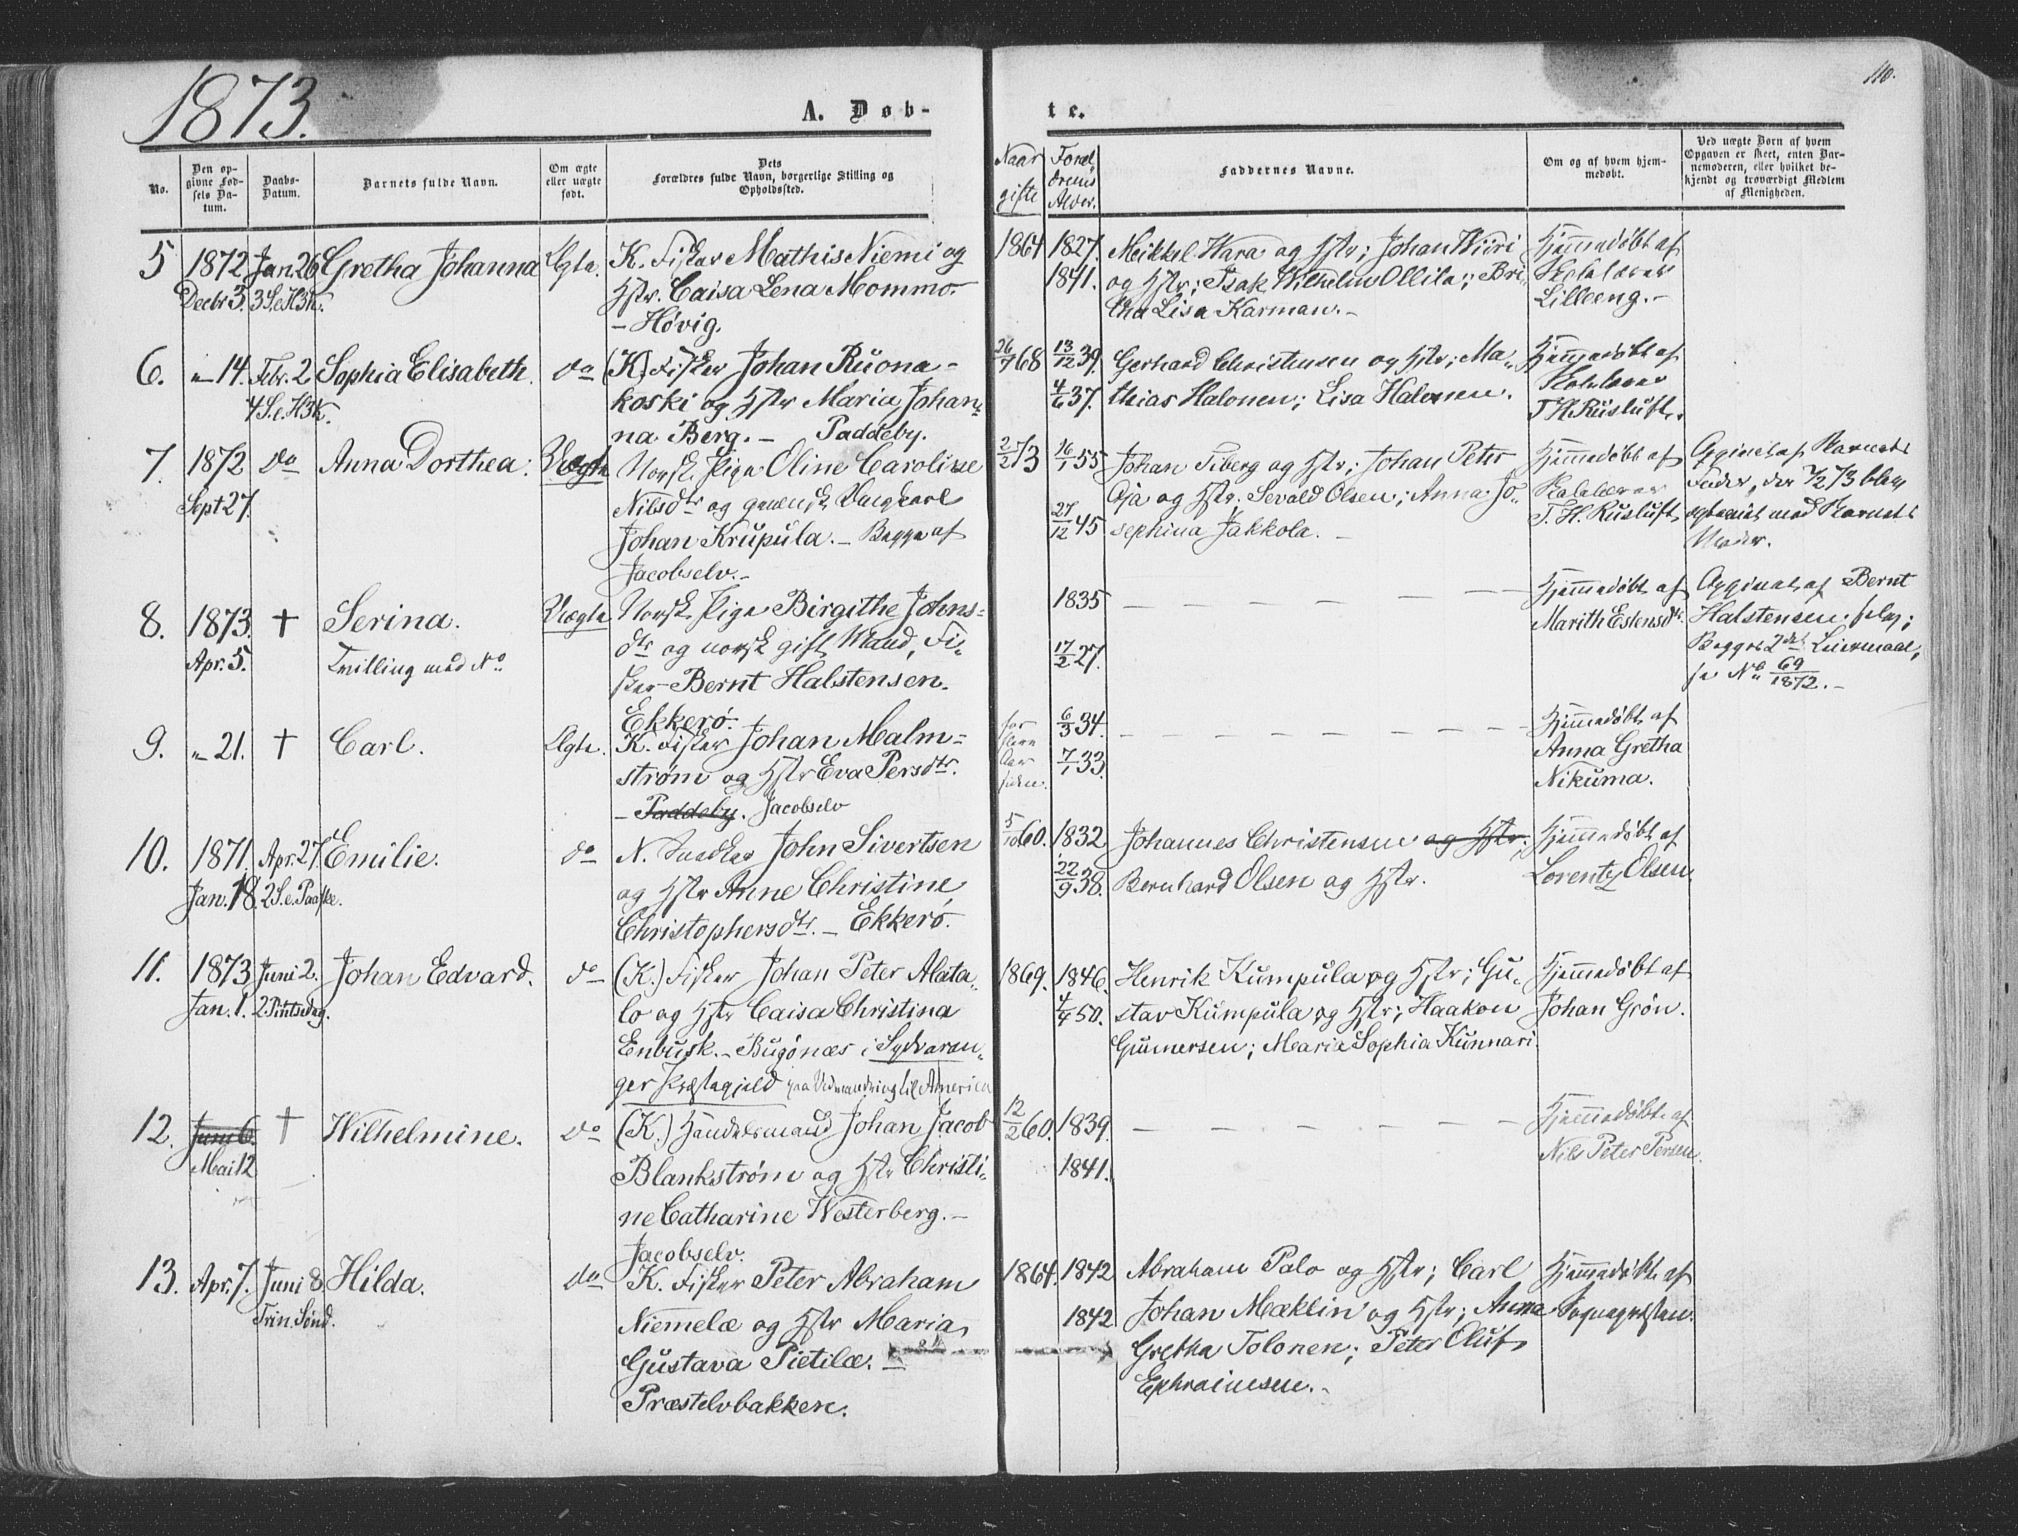 1873.
110.
A. Døb-
te.
No.
Den op-
givne Fød-
sels Da-
tum.
Daabs-
Datum.
Barnets fulde Navn.
Om ægte
eller uægte
født.
Dets
Forældres fulde Navn, borgerlige Stilling og
Opholdssted.
Naar
gifte
Foræl
drenes
Alder.
Faddernes Navne.
Om og af hvem hjem-
medøbt.
Ved uægte Børn af hvem
Opgaven er skeet, enten Bar-
nemoderen, eller hvilket be-
kjendt og troværdigt Medlem
af Menigheden.
5 1872 Jan. 26 Gretha Johanna Ægte. K. Fisker Mathis Niemi og
Decbr 3. 3 S. e. H3K. Hstr. Caisa Lena Mommo.
– Høvig.
1864 1827. Meikkel Hara og Hstr; Johan Wiiri
1841. og Hstr; Isak Wilhelm Ollila; Bri-
tha Lisa Karman.
Hjemmedøbt af
Kokelærer
Lilleeng.–
6. „ 14. Febr. 2 Sophia Elisabeth. do (K) Fisker Johan Ruona-
4 S. e. H3K. koski og Hstr Maria Johan-
na Berg.– Paddeby.
26/7 68 13/12 39. Gerhard Christensen og Hstr; Ma-
4/6 37. thias Halonen; Lisa Halonen.
Hjemmedøbt af
T. H. Rusluft.
7. 1872 do Anna Dorthea. Uægte Norsk Pige Oline Caroline
Sept 27. Nilsdtr og qvænsk Ungkarl
Johan Krupula.– Begge af
Jacobselv.–
2/2 73 16/1 55 Johan Siberg og Hstr; Johan Peter
Oja og Hstr. Sevald Olsen; Anna Jo-
27/12 45 sephina Jakkola.–
Hjemmedøbt af
T. H. Rusluft.
Opgivet af Barnets
Fader, der 2/2 73 blev
egteviet med Barnets
Moder.
8. 1873. † Serina. Uægte Norsk Pige Birgithe Johns-
Apr. 5. Tvilling med No dtr og norsk gift Mand, Fi-
sker Bernt Halstensen.
Ekkerø.
1835
17/2 27.
Hjemmedøbt af
Marith Estensdtr.
Opgivet af Bernt
Halstensen selv;
Begges 2det Leiermaal,
se No 69/1872.–
9. „ 21. † Carl. Ægte. K. Fisker Johan Malm-
strøm og Hstr Eva Persdtr.
– Paddeby. Jacobselv
for
flere
Aar
siden.
6/3 34
7/1 33.
Hjemmedøbt af
Anna Gretha
Nikuma.
10. 1871. Apr. 27. Emilie. do N. Snedker John Sivertsen
Jan. 18. 2 S. e. Paaske. og Hstr Anne Christine
Christophersdtr.– Ekkerø.
5/10 60. 1832 Johannes Christensen og Hstr;
22/9 38. Bernhard Olsen og Hstr.
Hjemmedøbt af
Lorentz Olsen.
11. 1873 Juni 2. Johan Edvard. do (K.) Fisker Johan Peter Alata-
Jan. 1. 2 Pintsedag. lo og Hstr Caisa Christina
Enbusk.– Bugønæs i Sydvaran-
ger Præstegjeld paa Udvandring til America
1869. 1846. Henrik Kumpula og Hstr; Gu-
4/4 50. stav Kumpula og Hstr; Haakon
Gunnersen; Maria Sophia Kunnari.
Hjemmedøbt af
Johan Grøn.
12. Juni 6. † Wilhelmine. do (K.) Handelsmand Johan Jacob
Mai 12 Blankstrøm og Hstr Christi-
ne Catharine Westerberg.–
Jacobselv.
12/2 60. 1839.
1841.
Hjemmedøbt af
Nils Peter Persen.
13. Apr. 7. Juni 8. Hilda. do K. Fisker Peter Abraham
Trin. Sønd. Niemelæ og Hstr Maria
Gustava Pietilæ.–
Præstelvbakken.
1864. 1842 Abraham Palo og Hstr; Carl
1842 Johan Mæklin og Hstr; Anna
Gretha Tolonen; Peter Oluf
Ephraimsen.–
Hjemmedøbt af
Sognepræsten.